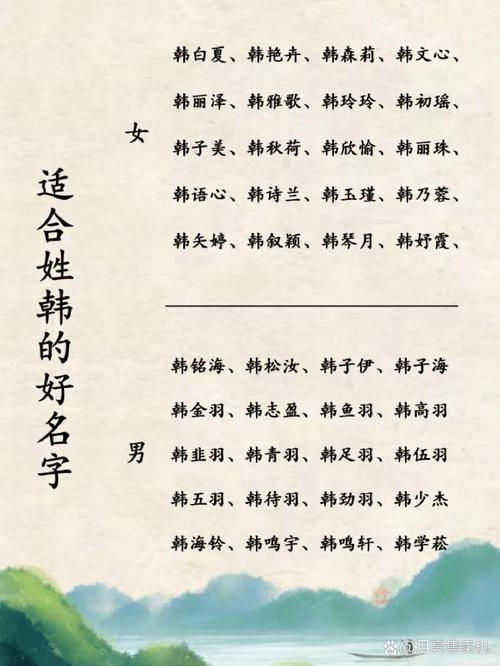 适合姓韩的好名字
女
韩白夏、韩艳卉、韩森莉、韩文心、
韩丽泽、韩雅歌、韩玲玲、韩初瑶、
韩子美、韩秋荷、韩欣愉、韩丽珠、
韩语心、韩诗兰、韩玉瑾、韩乃蓉、
韩矢婷、韩叙颖、韩琴月、韩妤霞、
男
韩铭海、韩松汝、韩子伊、韩子海
韩金羽、韩志盈、韩鱼羽、韩高羽
韩韭羽、韩青羽、韩足羽、韩伍羽
韩五羽、韩待羽、韩劲羽、韩少杰
韩海铃、韩鸣宇、韩鸣轩、韩学菘
@月亮售卖机